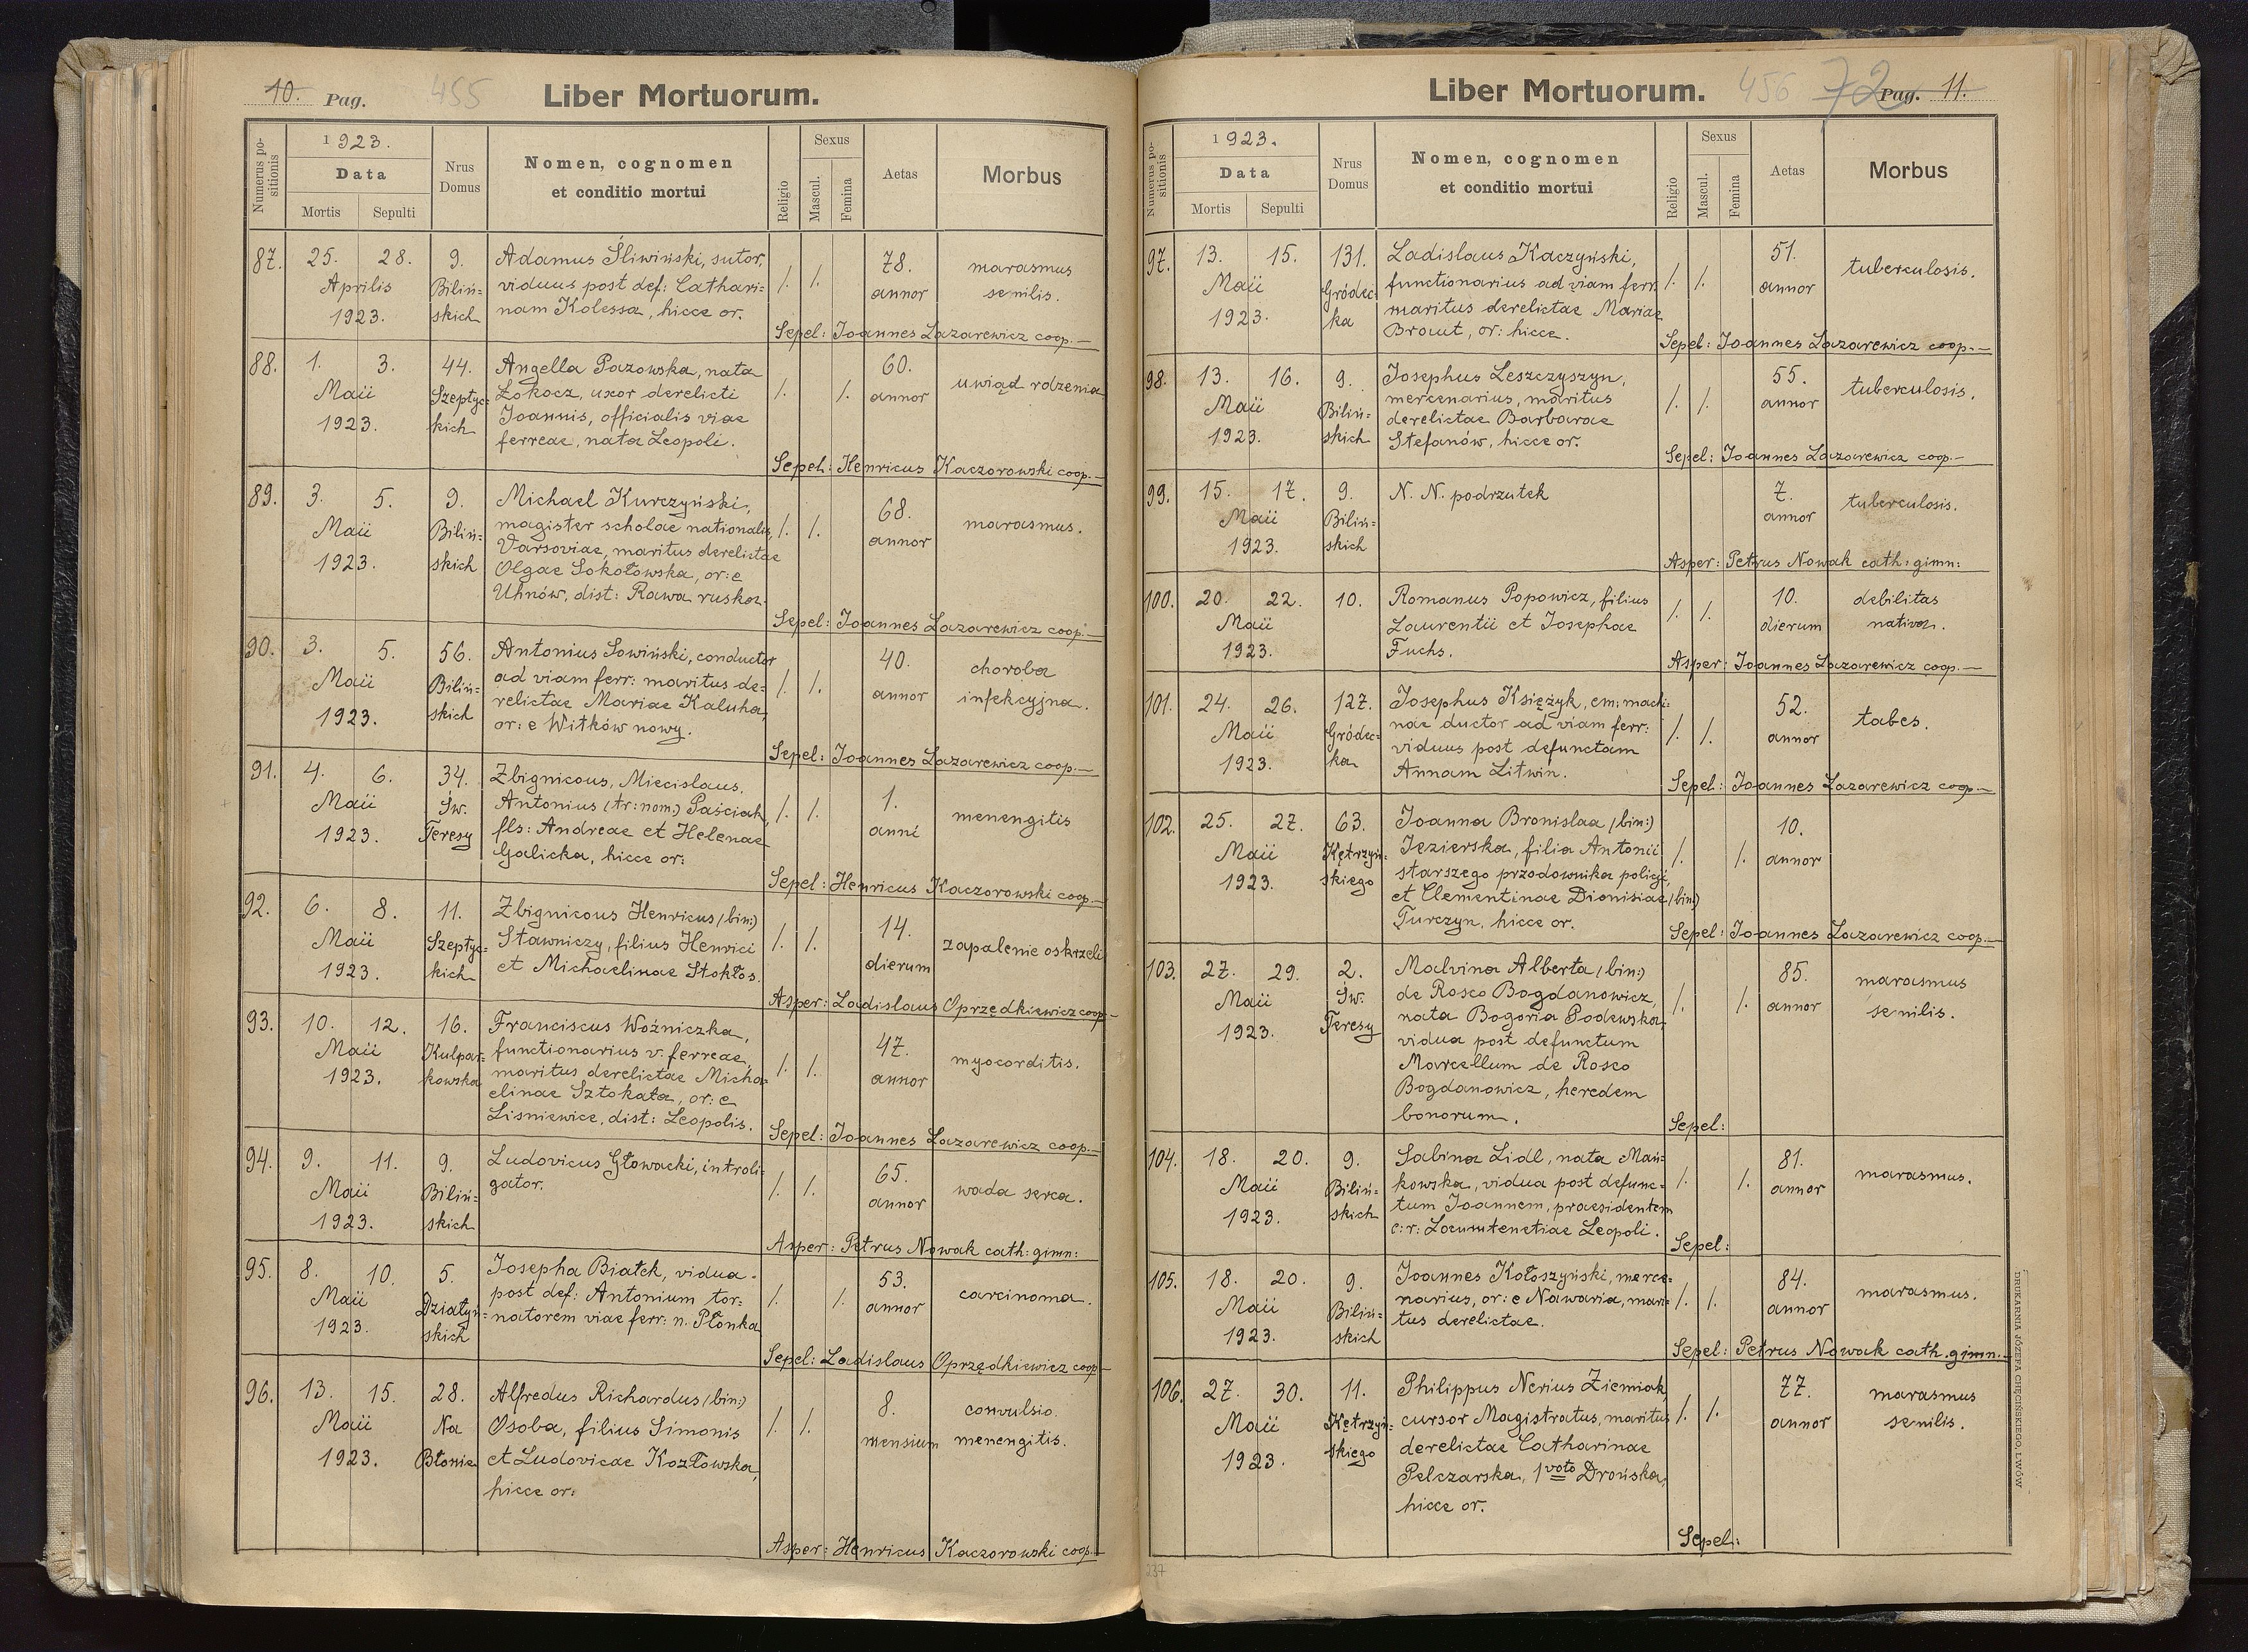 10. Pag. 455 Liber Mortuorum.
Numerus positionis
1923.
Data
Mortis Sepulti
Nrus Domus
Nomen, cognomen
et conditio mortui
Religio
Sexus
Mascul.
Femina
Aetas
Morbus
87. 25. 28. 9. Adamus Śliwiński, sutor, 78. marasmus
Aprilis Biliń= viduus post def: Cathari= /. /. annor senilis.
1923. skich nam Kolessa, hicce or.
Sepel: Joannes Lazarewicz coop.—
88. 1. 3. 44. Angella Pazowska, nata 60. uwiąd rdzenia
Maii Szeptyc= Łokocz, uxor derelicti /. /. annor
1923. kich Joannis, officialis viae
ferreae, nata Leopoli.
Sepel: Henricus Kaczorowski coop.—
89. 3. 5. 9. Michael Kurczyński, 68. marasmus.
Maii Biliń= magister scholae nationalis, /. /. annor
1923. skich Varsoviae, maritus derelictae
Olgae Sokołowska, or: e
Uhnów, dist: Rawa ruska.
Sepel: Joannes Lazarewicz coop.—
90. 3. 5. 56. Antonius Sowiński, conductor 40. choroba
Maii Biliń= ad viam ferr: maritus de= /. /. annor infekcyjna.
1923. skich relictae Mariae Kaluha,
or: e Witków nowy.
Sepel: Joannes Lazarewicz coop.—
91. 4. 6. 34. Zbignieus, Miecislaus, 1. menengitis
Maii Św. Antonius (tr: nom:) Paściak, /. /. anni
1923. Teresy fls: Andreae et Helenae
Galicka, hicce or:
Sepel: Henricus Kaczorowski coop.—
92. 6. 8. 11. Zbignieus Henricus (bin:) 14. zapalenie oskrzeli
Maii Szeptyc= Stawniczy, filius Henrici /. /. dierum
1923. kich et Michaelinae Stokłos.
Asper: Ladislaus Oprzędkiewicz coop.—
93. 10. 12. 16. Franciscus Woźniczka, 47. myocorditis.
Maii Kulpar= functionarius v. ferreae, /. /. annor
1923. kowska maritus derelictae Micha=
elinae Sztokata, or: e
Lisniewice, dist: Leopolis.
Sepel: Joannes Lazarewicz coop.—
94. 9. 11. 9. Ludovicus Głowacki, introli= 65. wada serca.
Maii Biliń= gator. /. /. annor
1923. skich
Asper: Petrus Nowak cath: gimn:
95. 8. 10. 5. Josepha Białek, vidua 53. carcinoma.
Maii Działyń= post def: Antonium tor= /. /. annor
1923. skich natorem viae ferr: n. Płonka
Sepel: Ladislaus Oprzędkiewicz coop—
96. 13. 15. 28. Alfredus Richardus (bin:) 8. convulsio.
Maii Na Osoba, filius Simonis /. /. mensium menengitis.
1923. Błonie et Ludovicae Kozłowska,
hicce or:
Asper: Henricus Kaczorowski coop.—
Liber Mortuorum. 456 72 Pag. 11.
Numerus positionis
1923.
Data
Mortis Sepulti
Nrus Domus
Nomen, cognomen
et conditio mortui
Religio
Sexus
Mascul.
Femina
Aetas
Morbus
97. 13. 15. 131. Ladislaus Kaczyński, 51. tuberculosis.
Maii Gródec= functionarius ad viam ferr. /. /. annor
1923. ka maritus derelictae Mariae
Braut, or: hicce.
Sepel: Joannes Lazarewicz coop.—
98. 13. 16. 9. Josephus Leszczyszyn, 55. tuberculosis.
Maii Biliń= mercenarius, maritus /. /. annor
1923. skich derelictae Barbarae
Stefanów, hicce or.
Sepel: Joannes Lazarewicz coop.—
99. 15. 17. 9. N. N. podrzutek 7. tuberculosis.
Maii Biliń= annor
1923. skich
Asper: Petrus Nowak cath: gimn:
100. 20. 22. 10. Romanus Popowicz, filius 10. debilitas
Maii Laurentii et Josephae /. /. dierum nativa.
1923. Fuchs.
Asper: Joannes Lazarewicz coop.—
101. 24. 26. 127. Josephus Księżyk, em: machi= 52. tabes.
Maii Gródec= nae ductor ad viam ferr: /. /. annor
1923. ka viduus post defunctam
Annam Litwin.
Sepel: Joannes Lazarewicz coop.—
102. 25. 27. 63. Joanna Bronislaa (bin:) 10.
Maii Kętrzyń= Jezierska, filia Antonii /. /. annor
1923. skiego starszego przodownika policji,
et Clementinae Dionisiae (bin:)
Turczyn, hicce or.
Sepel: Joannes Lazarewicz coop.—
103. 27. 29. 2. Malvina Alberta (bin:) 85. marasmus
Maii Św. de Rosco Bogdanowicz, /. /. annor senilis.
1923. Teresy nata Bogoria Podewska
vidua post defunctum
Marcellum de Rosco
Bogdanowicz, heredem
bonorum.
Sepel:
104. 18. 20. 9. Sabina Lidl, nata Mań= 81. marasmus.
Maii Biliń= kowska, vidua post defunc= /. /. annor
1923. skich tum Joannem, praesidentem
c: r: Locumtenetiae Leopoli.
Sepel:
105. 18. 20. 9. Joannes Kołoszyński, merce= 84. marasmus.
Maii Biliń= narius, or: e Nawaria, mari= /. /. annor
1923. skich tus derelictae.
Sepel: Petrus Nowak cath. gimn.—
106. 27. 30. 11. Philippus Nerius Ziemiak, 77. marasmus
Maii Kętrzyń= cursor Magistratus, maritus /. /. annor senilis.
1923. skiego derelictae Catharinae
Pelczarska, 1 voto Drońska,
hicce or.
Sepel:
DRUKARNIA JÓZEFA CHĘCIŃSKIEGO, LWÓW
237